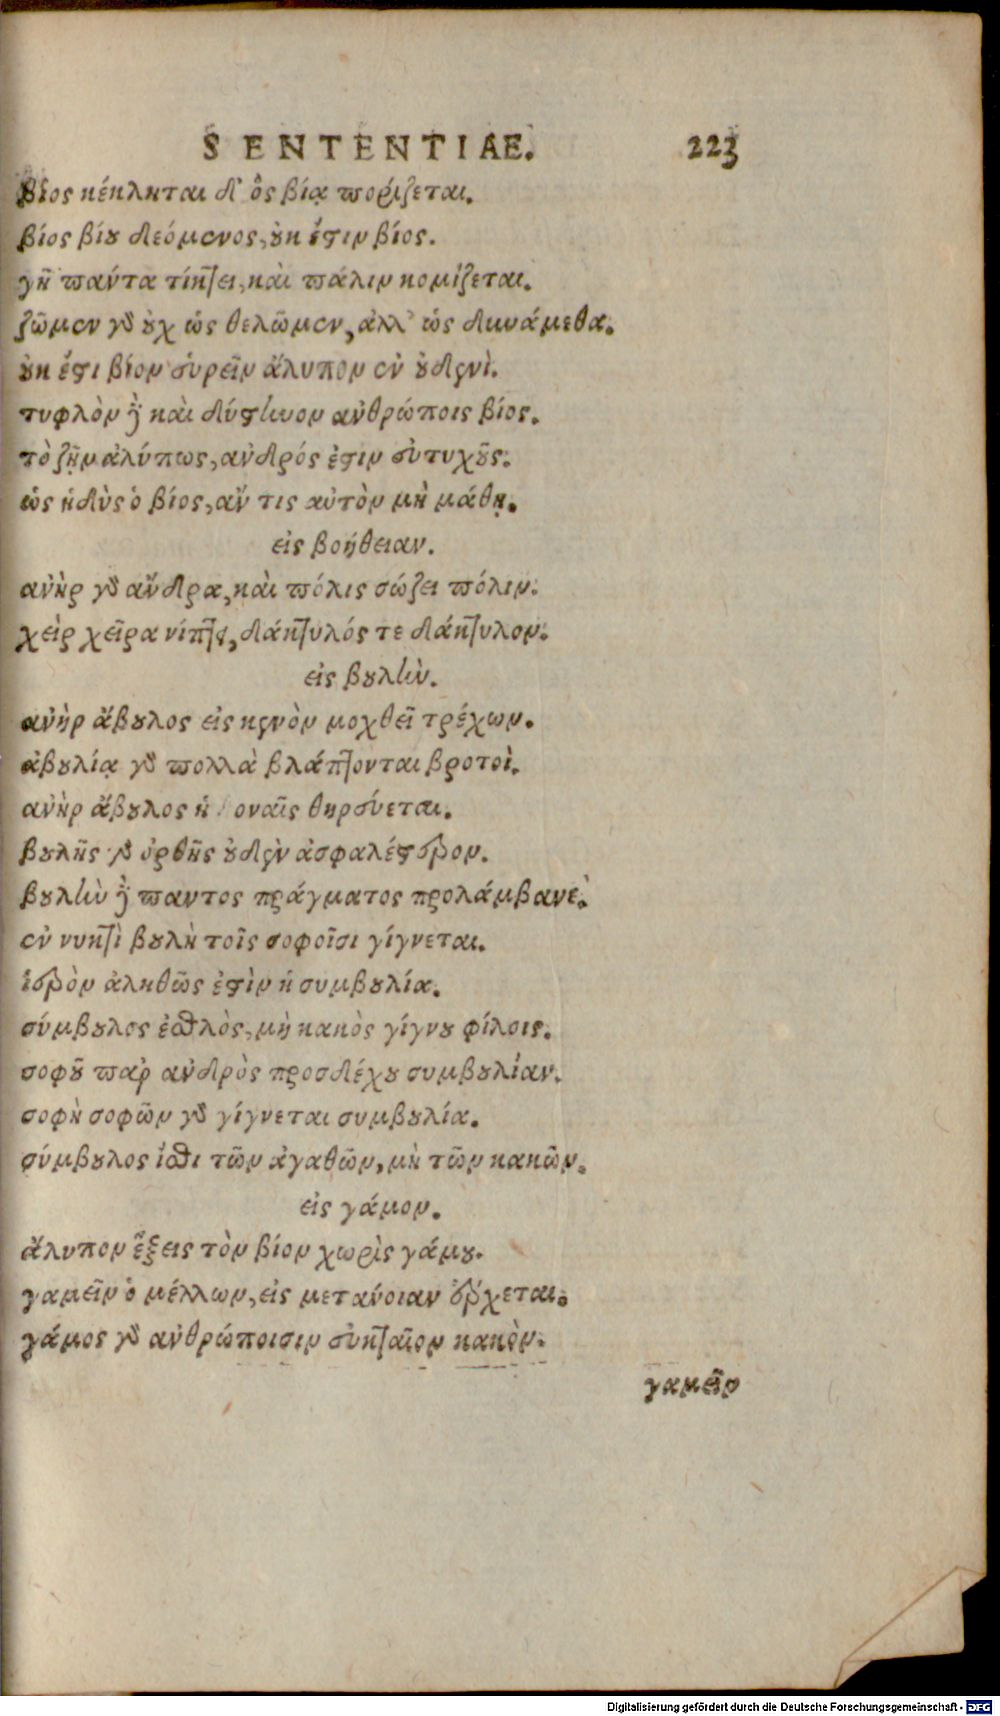 SENTENTIAE. 223
βίος κέκληται δ' ὃς βίᾳ πορίζεται.
βίος βίου δεόμενος, οὐκ ἔστιν βίος.
γῆ πάντα τίκτει, καὶ πάλιν κομίζεται.
ζῶμεν γὰρ οὐχ ὡς θελῶμεν, ἀλλ' ὡς δυνάμεθα.
οὐκ ἔστι βίον εὑρεῖν ἄλυπον ἐν οὐδενὶ.
τυφλὸν δὲ καὶ δύστηνον ἀνθρώποις βίος.
τὸ ζῆν ἀλύπως, ἀνδρός ἐστιν εὐτυχοῦς.
ὡς ἡδὺς ὁ βίος, ἄν τις αὐτὸν μὴ μάθῃ.
εἰς βοήθειαν.
ἀνὴρ γὰρ ἄνδρα, καὶ πόλις σώζει πόλιν.
χεὶρ χεῖρα νίπτει, δάκτυλός τε δάκτυλον.
εἰς βουλὴν.
ἀνὴρ ἄβουλος εἰς κενὸν μοχθεῖ τρέχων.
ἀβουλίᾳ γὰρ πολλὰ βλάπτονται βροτοὶ.
ἀνὴρ ἄβουλος ἡ οναῖς θηρεύεται.
βουλῆς γὰρ ὀρθῆς οὐδὲν ἀσφαλέστερον.
βουλὴν δὲ παντος πράγματος προλάμβανε.
ἐν νυκτὶ βουλὴ τοῖς σοφοῖσι γίγνεται.
ἱερὸν ἀληθῶς ἐστὶν ἡ συμβουλία.
σύμβουλος ἐσθλὸς, μὴ κακὸς γίγνου φίλοις.
σοφοῦ παρ' ἀνδρὸς προσδέχου συμβουλίαν.
σοφὴ σοφῶν γὰρ γίγνεται συμβουλία.
σύμβουλος ἴσθι τῶν ἀγαθῶν, μὴ τῶν κακῶν.
εἰς γάμον.
ἄλυπον ἕξεις τὸν βίον χωρὶς γάμου.
γαμεῖν ὁ μέλλων, εἰς μετάνοιαν ἔρχεται.
γάμος γὰρ ἀνθρώποισιν εὐκταῖον κακὸν.
γαμεῖν
Digitalisierung gefördert durch die Deutsche Forschungsgemeinschaft - DFG